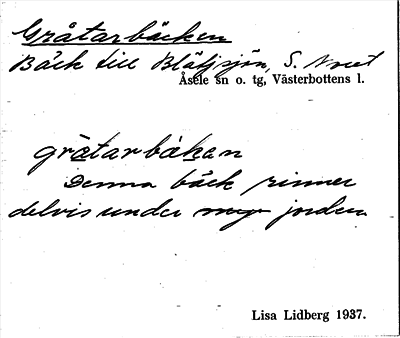 Gråtarbäcken
Bäck till Blåtjsjön, S.
Åsele sn o. tg, Västerbottens l.
gråtarbäkan
Denna bäck rinner
delvis under jorden
Lisa Lidberg 1937.